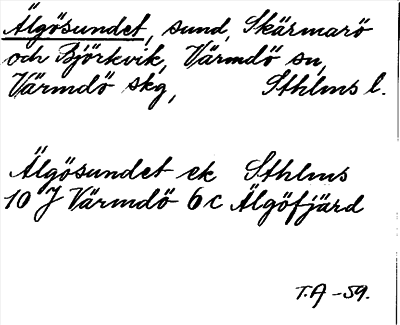 Älgösundet, sund, Skärmarö
och Björkvik, Värmdö sn,
Värmdö skg, Sthlms l.
Älgösundet ek Sthlms
10 J Värmdö 6c Älgöfjärd
T.A -59.